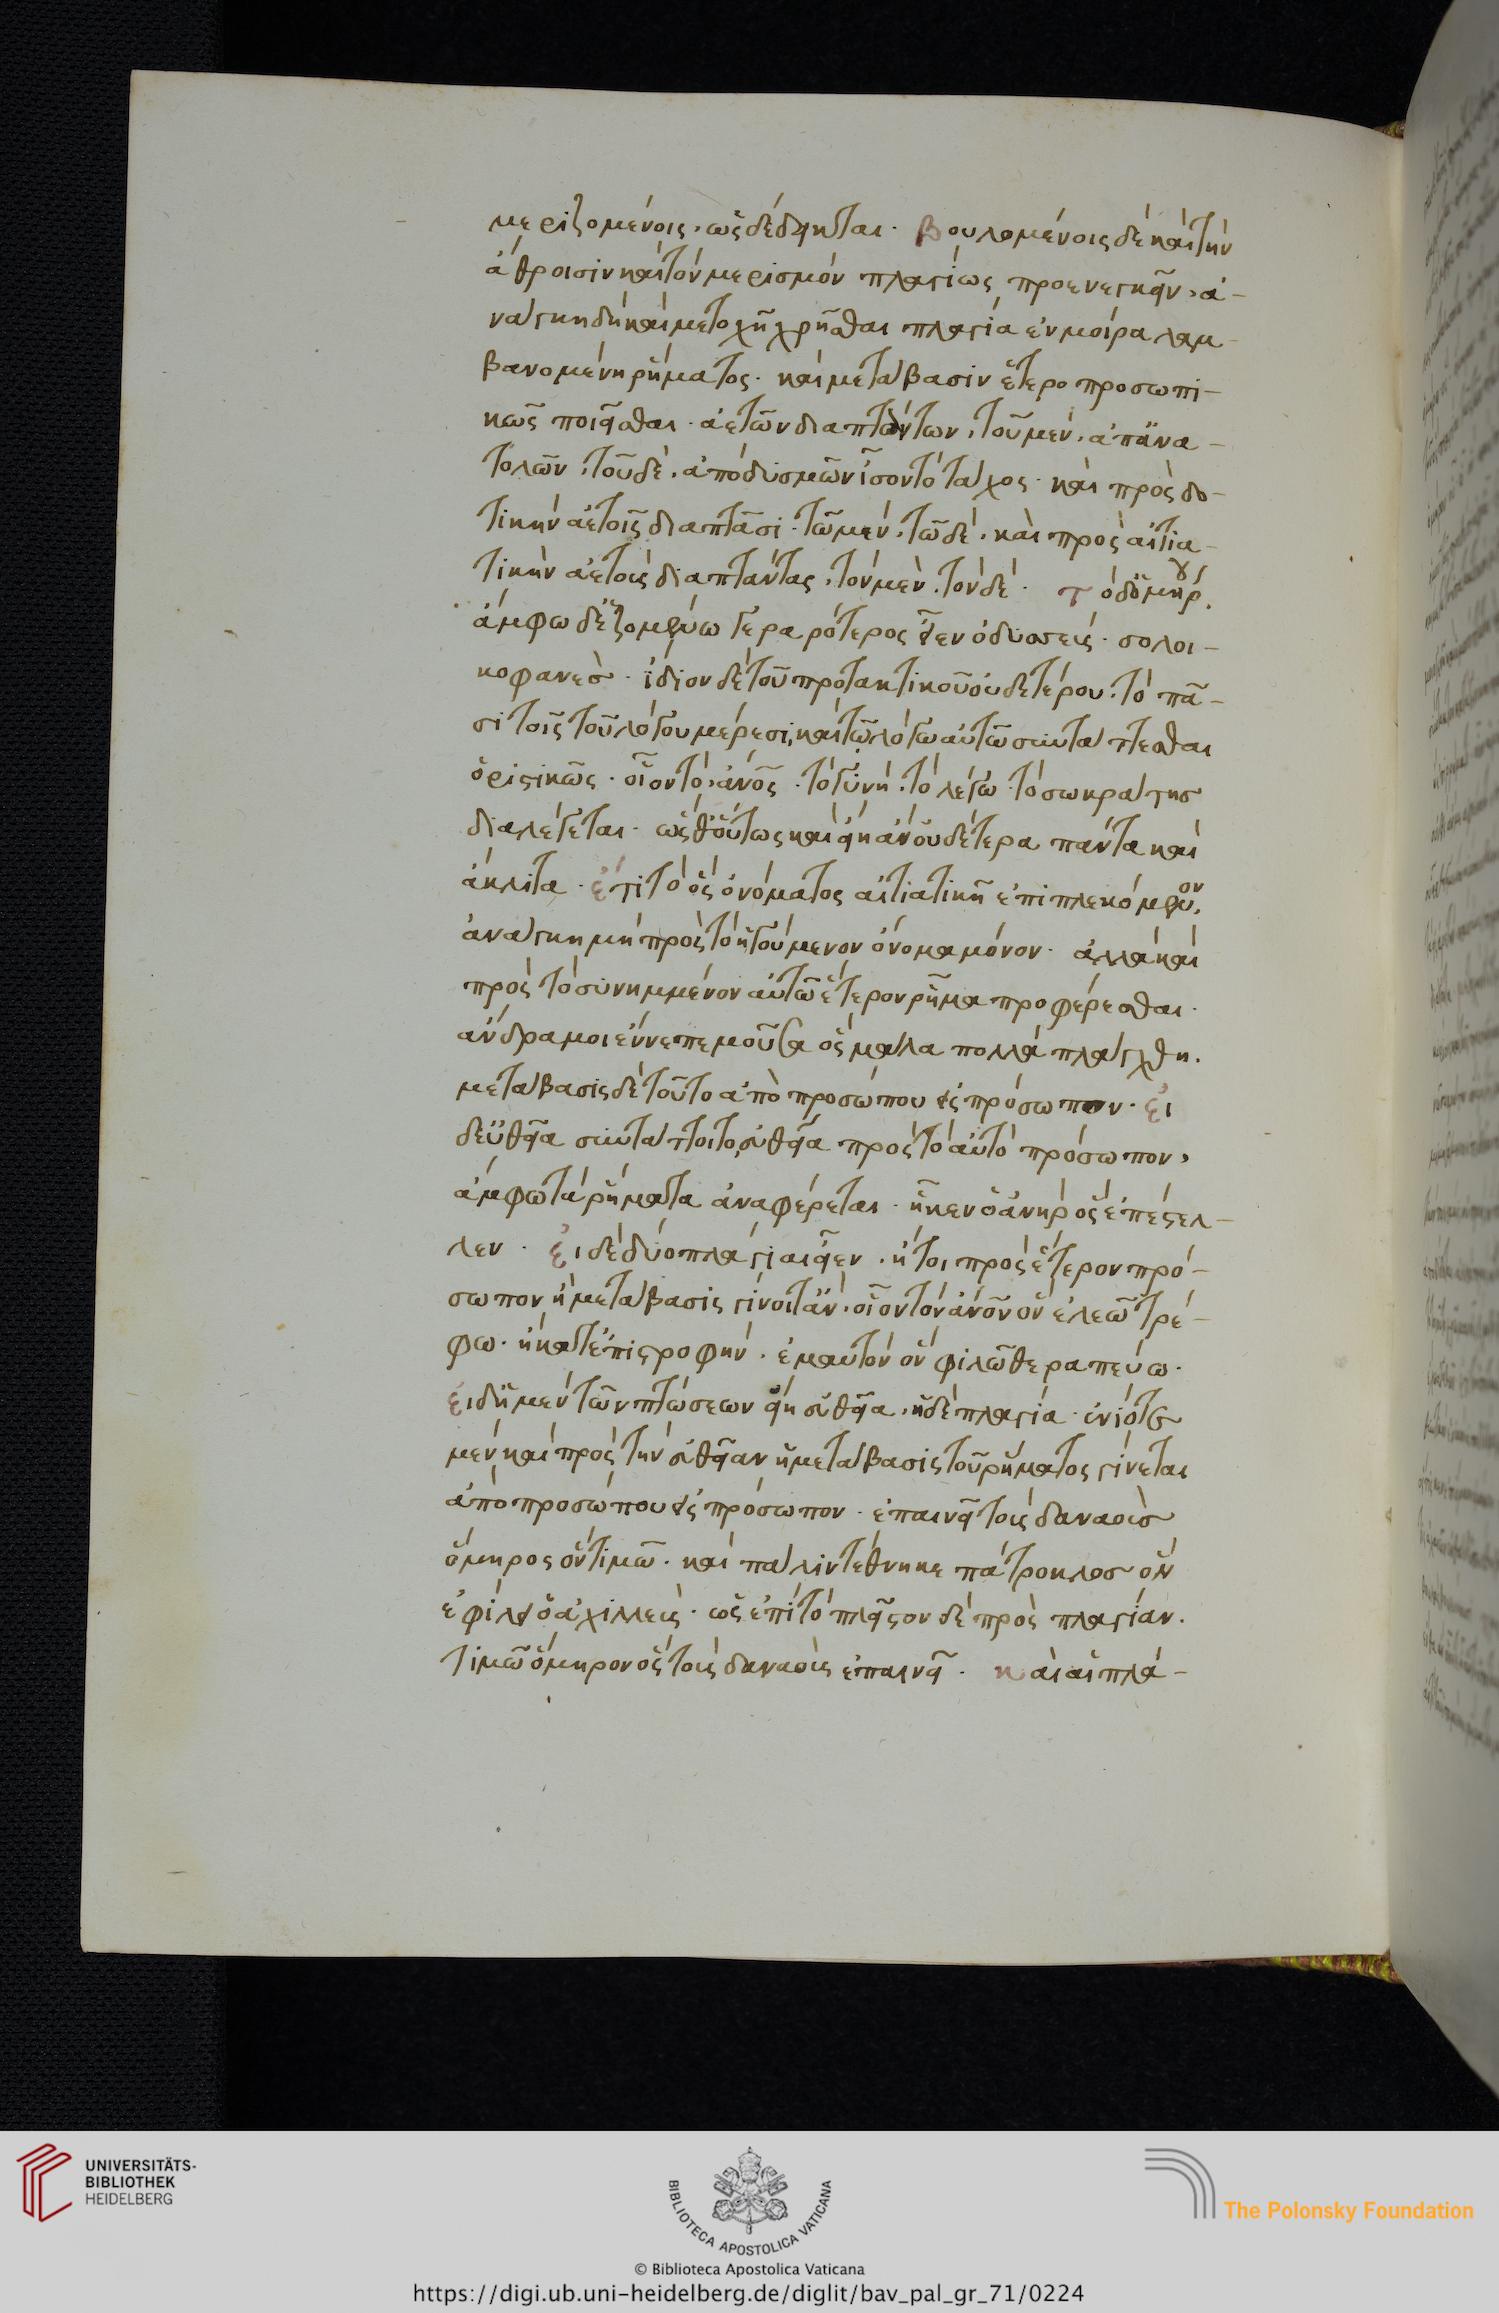 μεριζομένοις, ὡς δέδεικται. βουλομένοις δὲ καὶ τὴν
ἄθροισιν καὶ τὸν μερισμὸν πλαγίως προενεγκεῖν, ἀ-
νάγκη δὴ καὶ μετοχῆ χρῆσθαι πλαγία ἐν μοίρα λαμ-
βανομένη ῥήματος. καὶ μετάβασιν ἑτεροπροσωπι-
κῶς ποιεῖσθαι. ἀετῶν διαπτάντων, τοῦ μὲν, ἀπ' ἀνα-
τολῶν, τοῦ δὲ, ἀπὸ δυσμῶν ἴσον τὸ τάχος. καὶ πρὸς δο-
τικὴν ἀετοῖς διαπτᾶσι. τῶ μὲν, τῶ δέ. καὶ πρὸς αἰτια-
τικὴν ἀετοὺς διαπτάντας, τὸν μὲν, τὸν δέ. τὸ δ' ὁμήρου.
ἄμφω δ' ἑζομένω γεραρώτερος ἦεν ὀδυσσεύς. σολοι-
κοφανές. ἴδιον δὲ τοῦ προτακτικοῦ οὐδετέρου. τὸ πᾶ-
σι τοῖς τοῦ λόγου μέρεσι, καὶ τῶ λόγω αὐτῶ συντάττεσθαι
ὁριστικῶς. οἷον τὸ, ἄνος. τὸ γυνή. τὸ λέγω. τὸ σωκράτης
διαλέγεται. ὡς θ' οὕτως καὶ εἴη ἂν οὐδέτερα πάντα καὶ
ἄκλιτα. ἔτι τὸ ὃς ὀνόματος αἰτιατικῆ ἐπιπλεκόμενον,
ἀνάγκη μὴ πρὸς τὸ ἡγούμενον ὄνομα μόνον. ἀλλὰ καὶ
πρὸς τὸ συνημμένον αὐτῶ ἕτερον ῥῆμα προφέρεσθαι.
ἄνδρα μοι ἔννεπε μοῦσα ὃς μάλα πολλὰ πλάγχθη.
μετάβασις δὲ τοῦτο ἀπὸ προσώπου εἰς πρόσωπον. εἰ
δ' εὐθεῖα συντάττοιτο, εὐθεῖα πρὸς τὸ αὐτὸ πρόσωπον,
ἄμφω τὰ ῥήματα ἀναφέρεται. ἧκεν ὁ ἀνὴρ ὃς ἐπέστελ-
λεν. εἰ δὲ δύο πλάγιαι εἶεν. ἤτοι πρὸς ἕτερον πρό-
σωπον ἡ μετάβασις γίνοιτ' ἄν. οἷον τὸν ἄνον ὃν ἐλεῶ τρέ-
φω. ἢ κατ' ἐπιστροφήν. ἐμαυτὸν ὃν φιλῶ θεραπεύω.
εἰ δ' ἡ μὲν τῶν πτώσεων εἴη εὐθεῖα, ἡ δὲ πλαγία. ἐνίοτε
μὲν καὶ πρὸς τὴν εὐθεῖαν ἡ μετάβασις τοῦ ῥήματος γίνεται
ἀπὸ προσώπου εἰς πρόσωπον. ἐπαινεῖ τοὺς δαναοὺς
ὅμηρος ὃν τιμῶ. καὶ πάλιν τέθνηκε πάτροκλος ὃν
ἐφίλει ὁ ἀχιλλεύς. ὡς ἐπὶ τὸ πλεῖστον δὲ πρὸς πλαγίαν.
τιμῶ ὅμηρον ὃς τοὺς δαναοὺς ἐπαινεῖ. καὶ αἱ πλά-
UNIVERSITÄTS-
BIBLIOTHEK
HEIDELBERG
BIBLIOTECA APOSTOLICA VATICANA
The Polonsky Foundation
© Biblioteca Apostolica Vaticana
https://digi.ub.uni-heidelberg.de/diglit/bav_pal_gr_71/0224